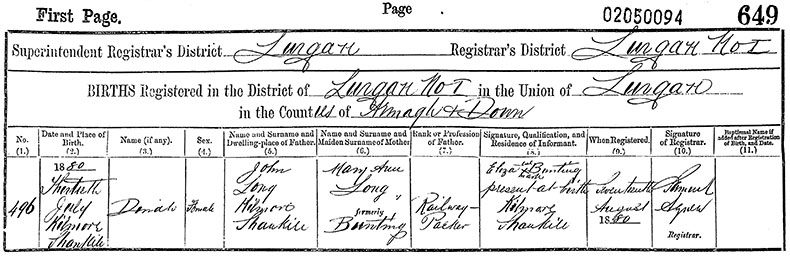 First Page. Page 02050094 649
Superintendent Registrar's District Lurgan Registrar's District Lurgan No I
BIRTHS Registered in the District of Lurgan No I in the Union of Lurgan
in the Counties of Armagh & Down
No. (1.) Date and Place of Birth. (2.) Name (if any). (3.) Sex. (4.) Name and Surname and Dwelling-place of Father. (5.) Name and Surname and Maiden Surname of Mother (6.) Rank or Profession of Father. (7.) Signature, Qualification, and Residence of Informant. (8.) When Registered. (9.) Signature of Registrar. (10.) Baptismal Name if added after Registration of Birth, and Date. (11.)
496
1880
Thirtieth
July
Kilmore
Shankill
Female
John
Long
Kilmore
Shankill
Mary Ann
Long
formerly
Bunting
Railway
Packer
Eliza Bunting
mark
present at birth
Kilmore
Shankill
Seventeenth
August
1880
Samuel
Agnew
Registrar.